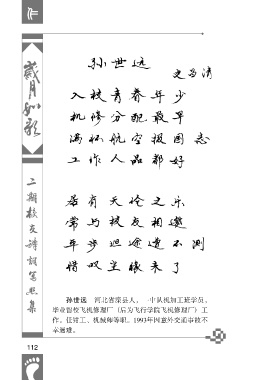 孙世远
史为清
入校青春年少
机修分配最早
满怀航空报国志
工作人品都好
居有天伦之乐
常与校友相邀
年步迥途遭不测
惜叹尘缘来了
岁月如歌
二期校友诗词写照集
孙世远 河北省滦县人，一中队机加工班学员。
毕业留校飞机修理厂（后为飞行学院飞机修理厂）工
作，任钳工、机械师等职。1993年因意外交通事故不
幸遇难。
112